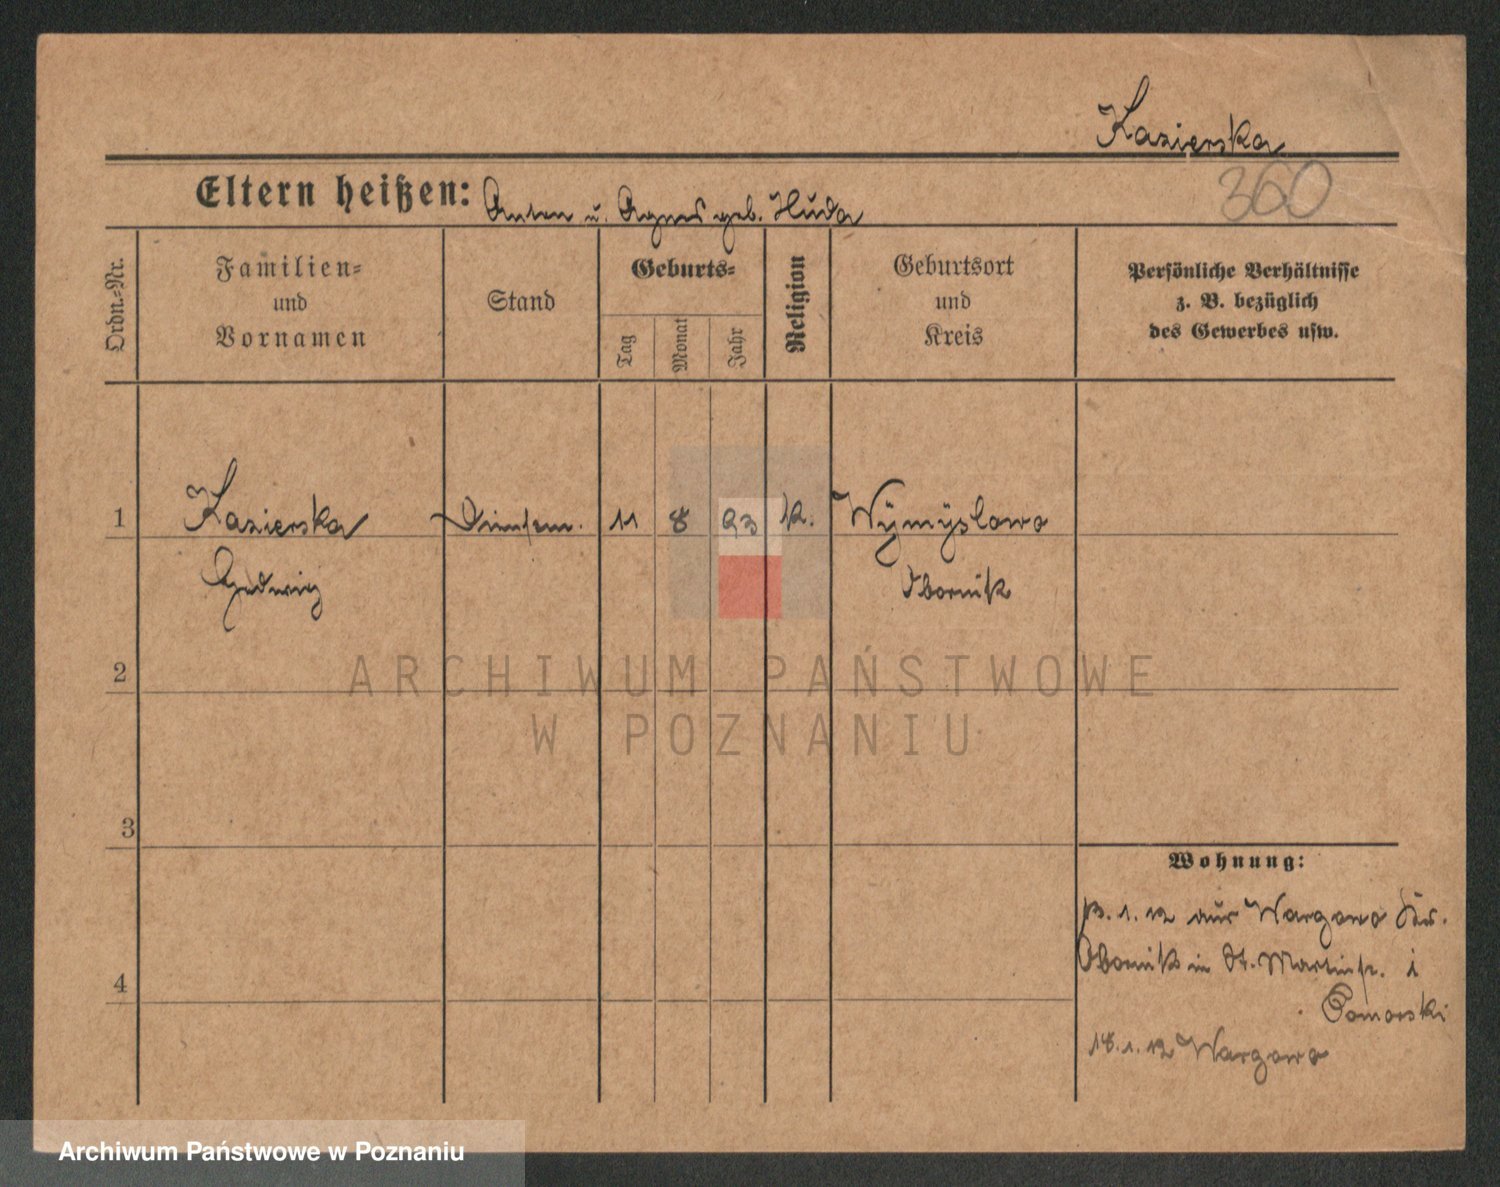 Kazierska
360
Eltern heißen: Anton u. Agnes geb. Huda
Ordn.-Nr.
Familien-
und
Vornamen
Stand
Geburts-
Tag
Monat
Jahr
Religion
Geburtsort
und
Kreis
Persönliche Verhältnisse
z. B. bezüglich
des Gewerbes usw.
1
Kazierska
Hedwig
11
8
93
k.
Wÿmÿslowo
Obornik
2
ARCHIWUM PAŃSTWOWE
W POZNANIU
3
Wohnung:
3.1.12 aus Wargowo Krs.
Obornik in St. Martinstr. 1
Pomorski
18.1.12 Wargowo
4
Archiwum Państwowe w Poznaniu